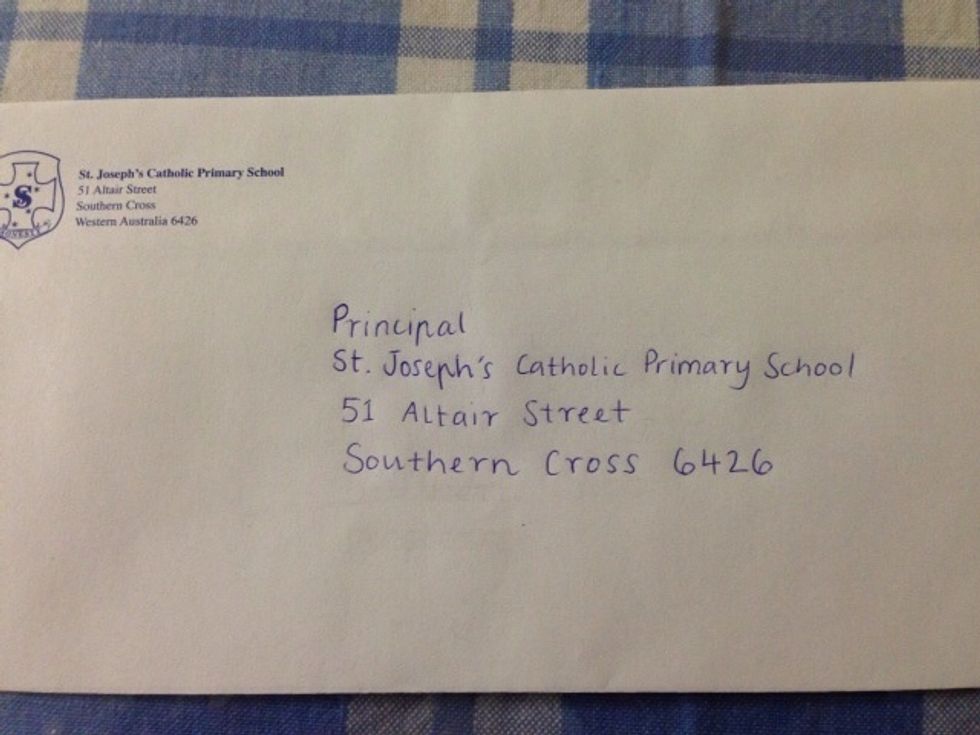 St. Joseph's Catholic Primary School
51 Altair Street
Southern Cross
Western Australia 6426
S
Principal
St. Joseph's Catholic Primary School
51 Altair Street
Southern Cross 6426